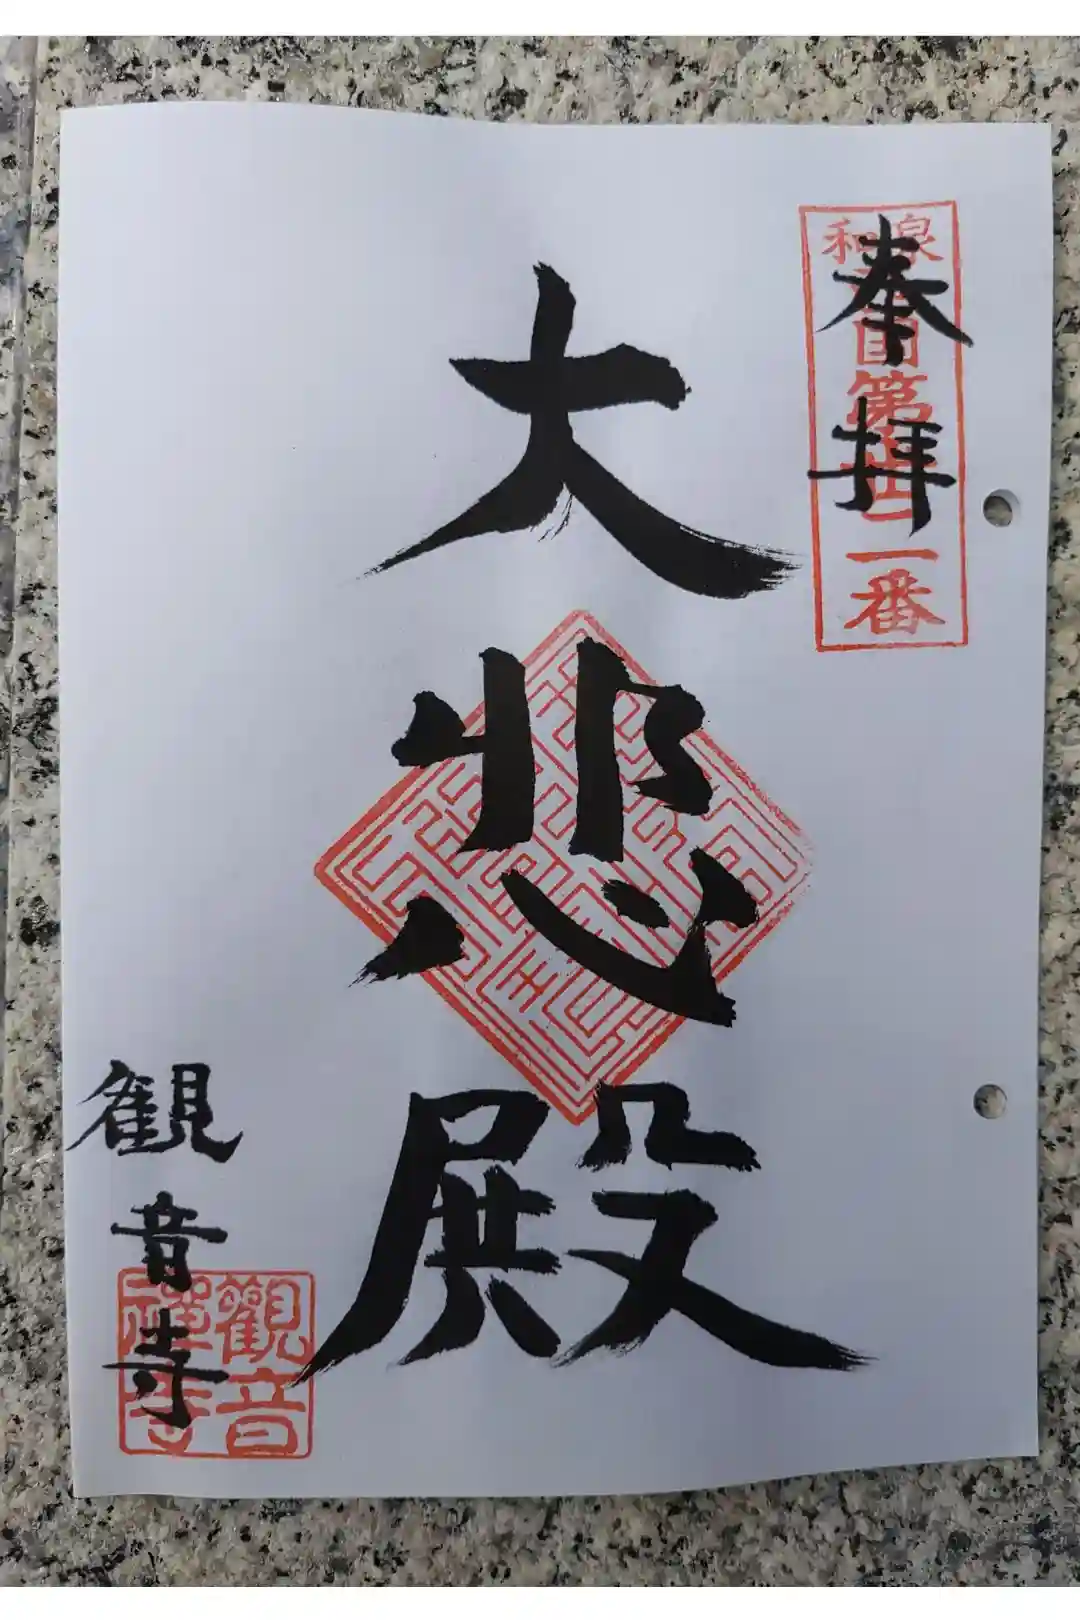 奉拝
和泉
国第
番
大悲殿
観音寺
觀音
禅寺